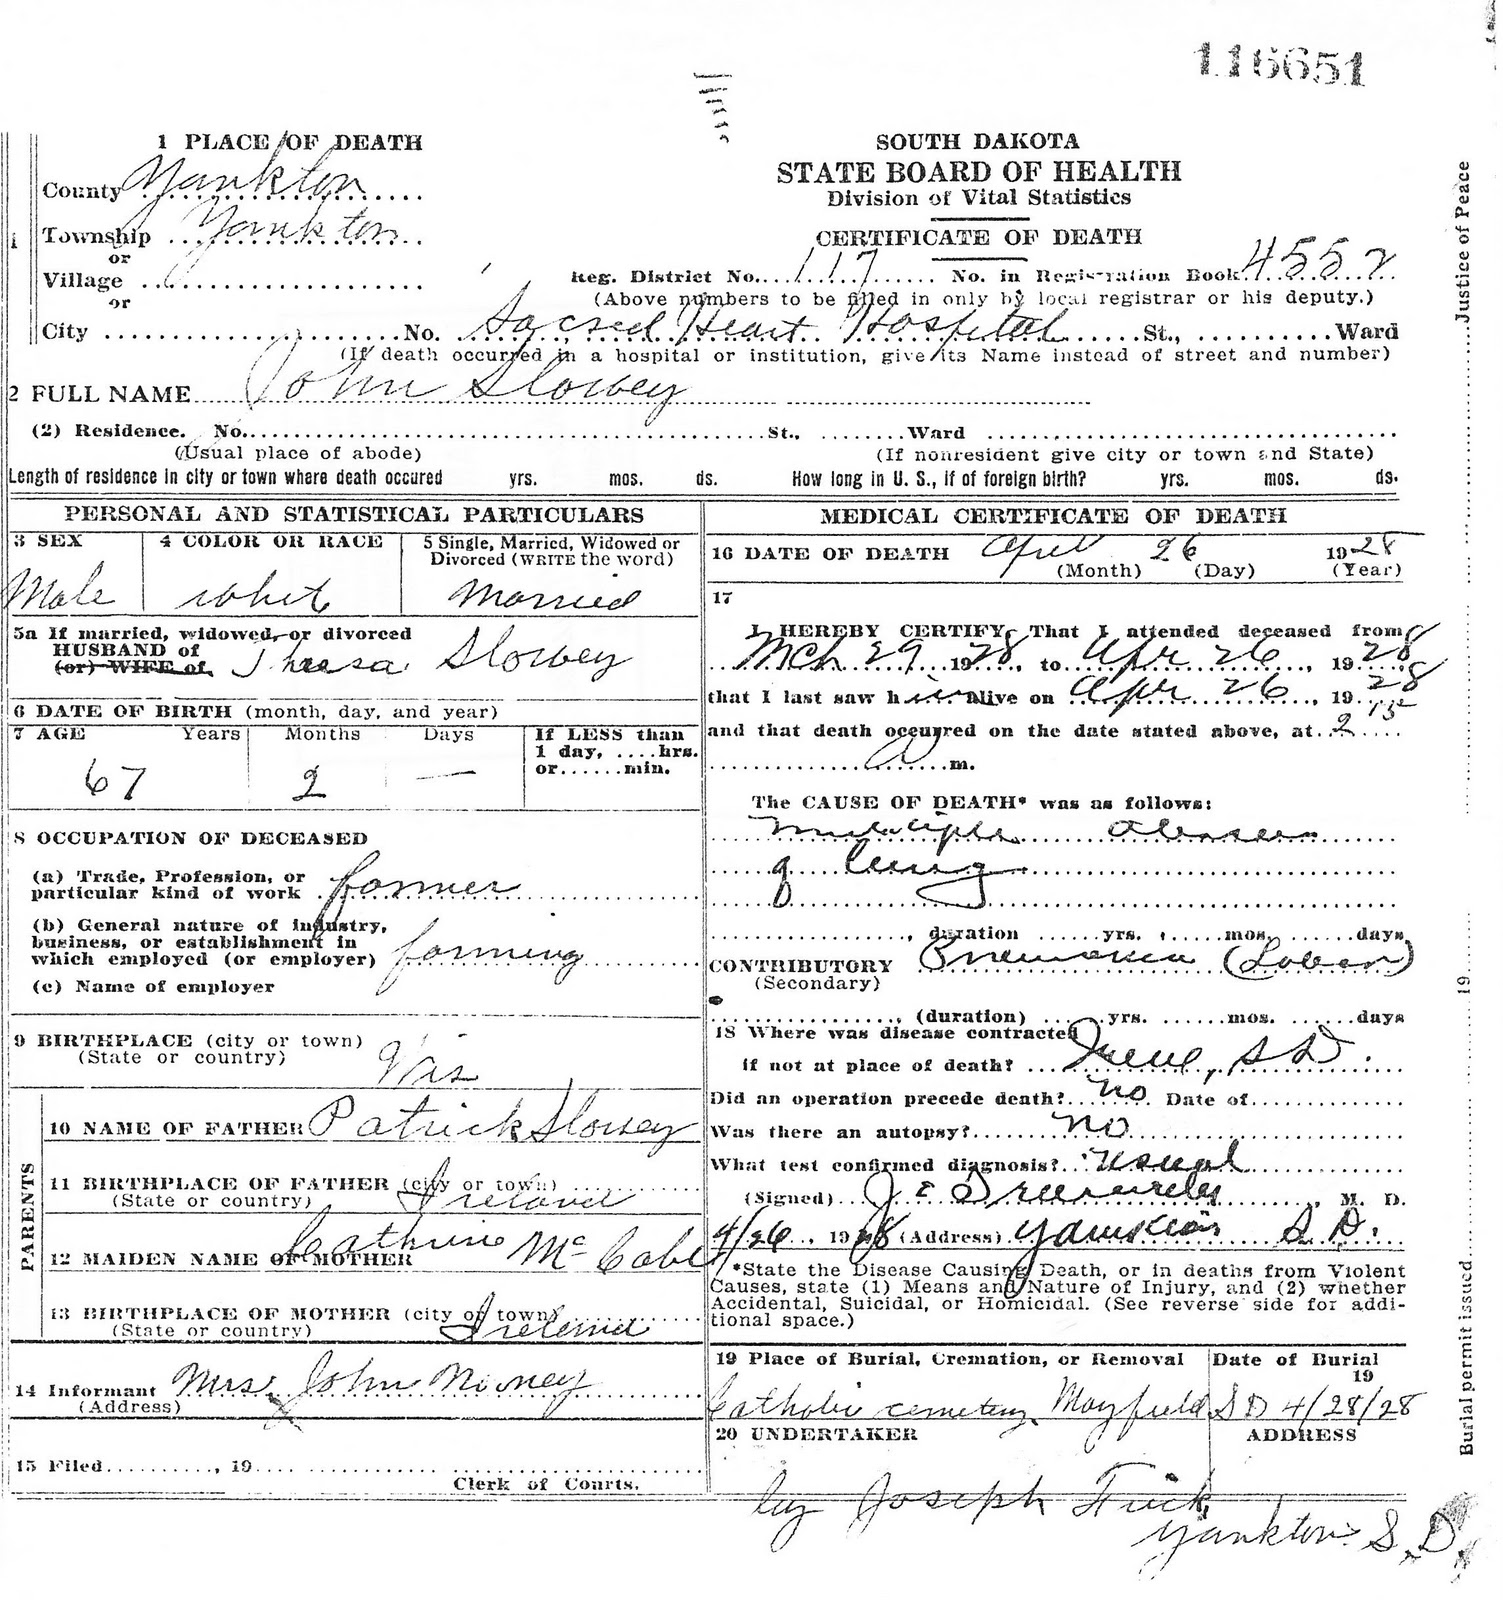 116651
1 PLACE OF DEATH
County Yankton
Township Yankton
or
Village
or
City No. Sacred Heart Hospital St., Ward
(If death occurred in a hospital or institution, give its Name instead of street and number)
SOUTH DAKOTA
STATE BOARD OF HEALTH
Division of Vital Statistics
CERTIFICATE OF DEATH
Reg. District No. 117 No. in Registration Book 4552
(Above numbers to be filled in only by local registrar or his deputy.)
2 FULL NAME John Slowey
(2) Residence. No. St., Ward
(Usual place of abode) (If nonresident give city or town and State)
Length of residence in city or town where death occured yrs. mos. ds. How long in U. S., if of foreign birth? yrs. mos. ds.
PERSONAL AND STATISTICAL PARTICULARS
3 SEX 4 COLOR OR RACE 5 Single, Married, Widowed or
Divorced (WRITE the word)
Male White Married
5a If married, widowed, or divorced
HUSBAND of
(or) WIFE of Theresa Slowey
6 DATE OF BIRTH (month, day, and year)
7 AGE Years Months Days If LESS than
1 day, ....hrs.
or......min.
67 2 —
8 OCCUPATION OF DECEASED
(a) Trade, Profession, or
particular kind of work farmer
(b) General nature of industry,
business, or establishment in
which employed (or employer) farming
(c) Name of employer
9 BIRTHPLACE (city or town)
(State or country) Wis
PARENTS
10 NAME OF FATHER Patrick Slowey
11 BIRTHPLACE OF FATHER (city or town)
(State or country) Ireland
12 MAIDEN NAME OF MOTHER Cathrine McCabe
13 BIRTHPLACE OF MOTHER (city or town)
(State or country) Ireland
14 Informant Mrs. John Mooney
(Address)
15 Filed , 19
Clerk of Courts.
MEDICAL CERTIFICATE OF DEATH
16 DATE OF DEATH April 26 1928
(Month) (Day) (Year)
17
I HEREBY CERTIFY, That I attended deceased from
Mch 29 1928, to Apr 26, 1928
that I last saw him alive on Apr 26, 1928
and that death occurred on the date stated above, at 2 15
A m.
The CAUSE OF DEATH* was as follows:
multiple abscesses
of lung
, duration yrs. mos. days
CONTRIBUTORY Pneumonia (Lobar)
(Secondary)
, (duration) yrs. mos. days
18 Where was disease contracted
if not at place of death? Irene, S D.
Did an operation precede death? No Date of
Was there an autopsy? No
What test confirmed diagnosis? usual
(Signed) J. E. , M. D.
4/26, 1928 (Address) Yankton S. D.
*State the Disease Causing Death, or in deaths from Violent
Causes, state (1) Means and Nature of Injury, and (2) whether
Accidental, Suicidal, or Homicidal. (See reverse side for addi-
tional space.)
19 Place of Burial, Cremation, or Removal Date of Burial
19
Catholic cemetery Mayfield S D 4/28/28
20 UNDERTAKER ADDRESS
by Joseph
Yankton S. D.
Justice of Peace
19
Burial permit issued